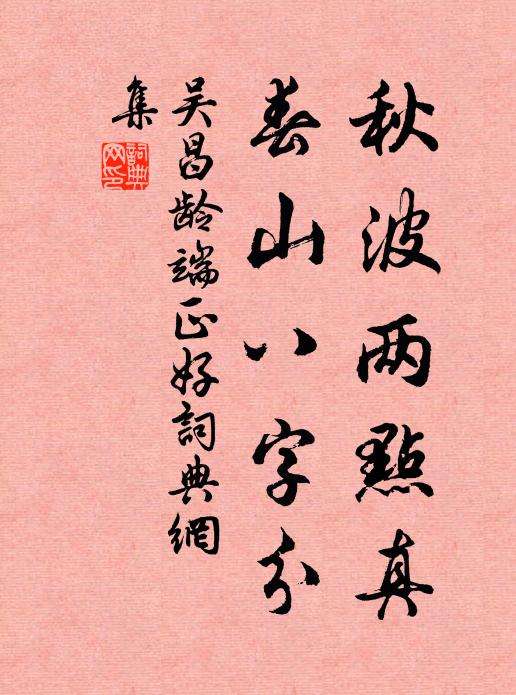 秋波两點真
春山八字分
吴昌龄端正好詞典網
集
詞典
网印